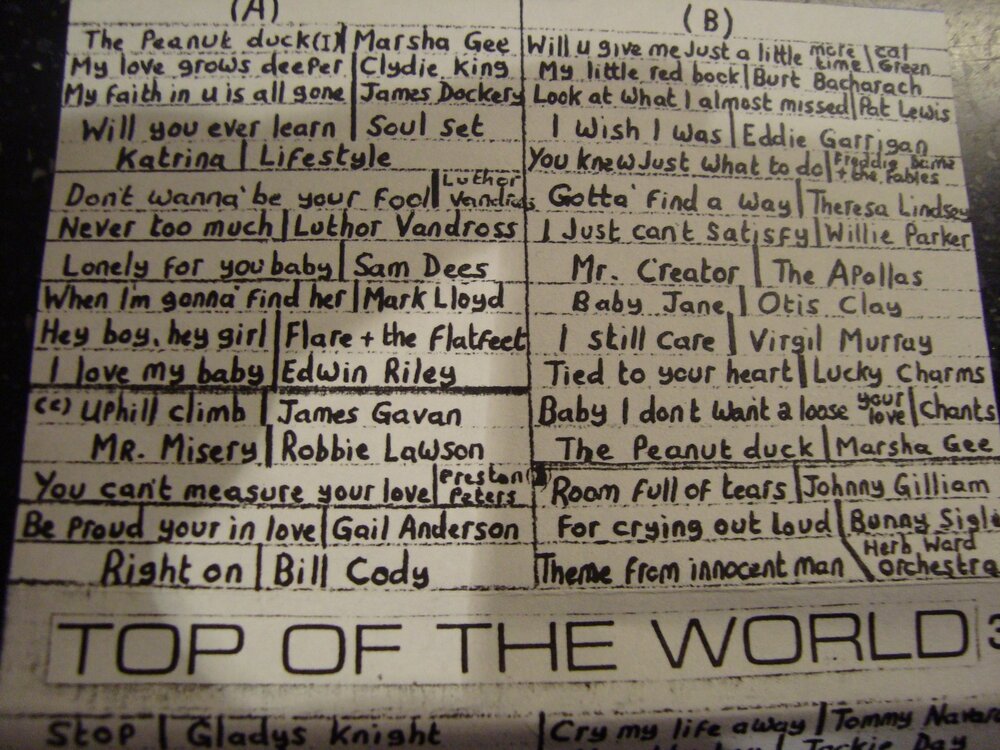 (A)
The Peanut duck(I) | Marsha Gee
My love grows deeper | Clydie King
My faith in u is all gone | James Dockery
Will you ever learn | Soul Set
Katrina | Lifestyle
Don't wanna' be your fool | Luthor Vandross
Never too much | Luthor Vandross
Lonely for you baby | Sam Dees
When I'm gonna' find her | Mark Lloyd
Hey boy, hey girl | Flare + the Flatfeet
I love my baby | Edwin Riley
(c) Uphill climb | James Gavan
MR. Misery | Robbie Lawson
You can't measure your love | Preston Peters
Be Proud your in love | Gail Anderson
Right on | Bill Cody
(B)
Will u give me Just a little more time | Cal Green
My little red bock | Burt Bacharach
Look at what I almost missed | Pat Lewis
I Wish I was | Eddie Garrigan
You knew Just what to do | Freddie + the Fables
Gotta' find a way | Theresa Lindsey
I Just can't Satisfy | Willie Parker
Mr. Creator | The Apollas
Baby Jane | Otis Clay
I still care | Virgil Murray
Tied to your heart | Lucky Charms
Baby I don't want a loose your love | Chants
The Peanut duck | Marsha Gee
Room full of tears | Johnny Gilliam
For crying out loud | Bunny Sigl
Theme from innocent man \ Herb Ward orchestra
TOP OF THE WORLD 3
Stop | Gladys Knight
Cry my life away | Tommy Navar
Jackie Day